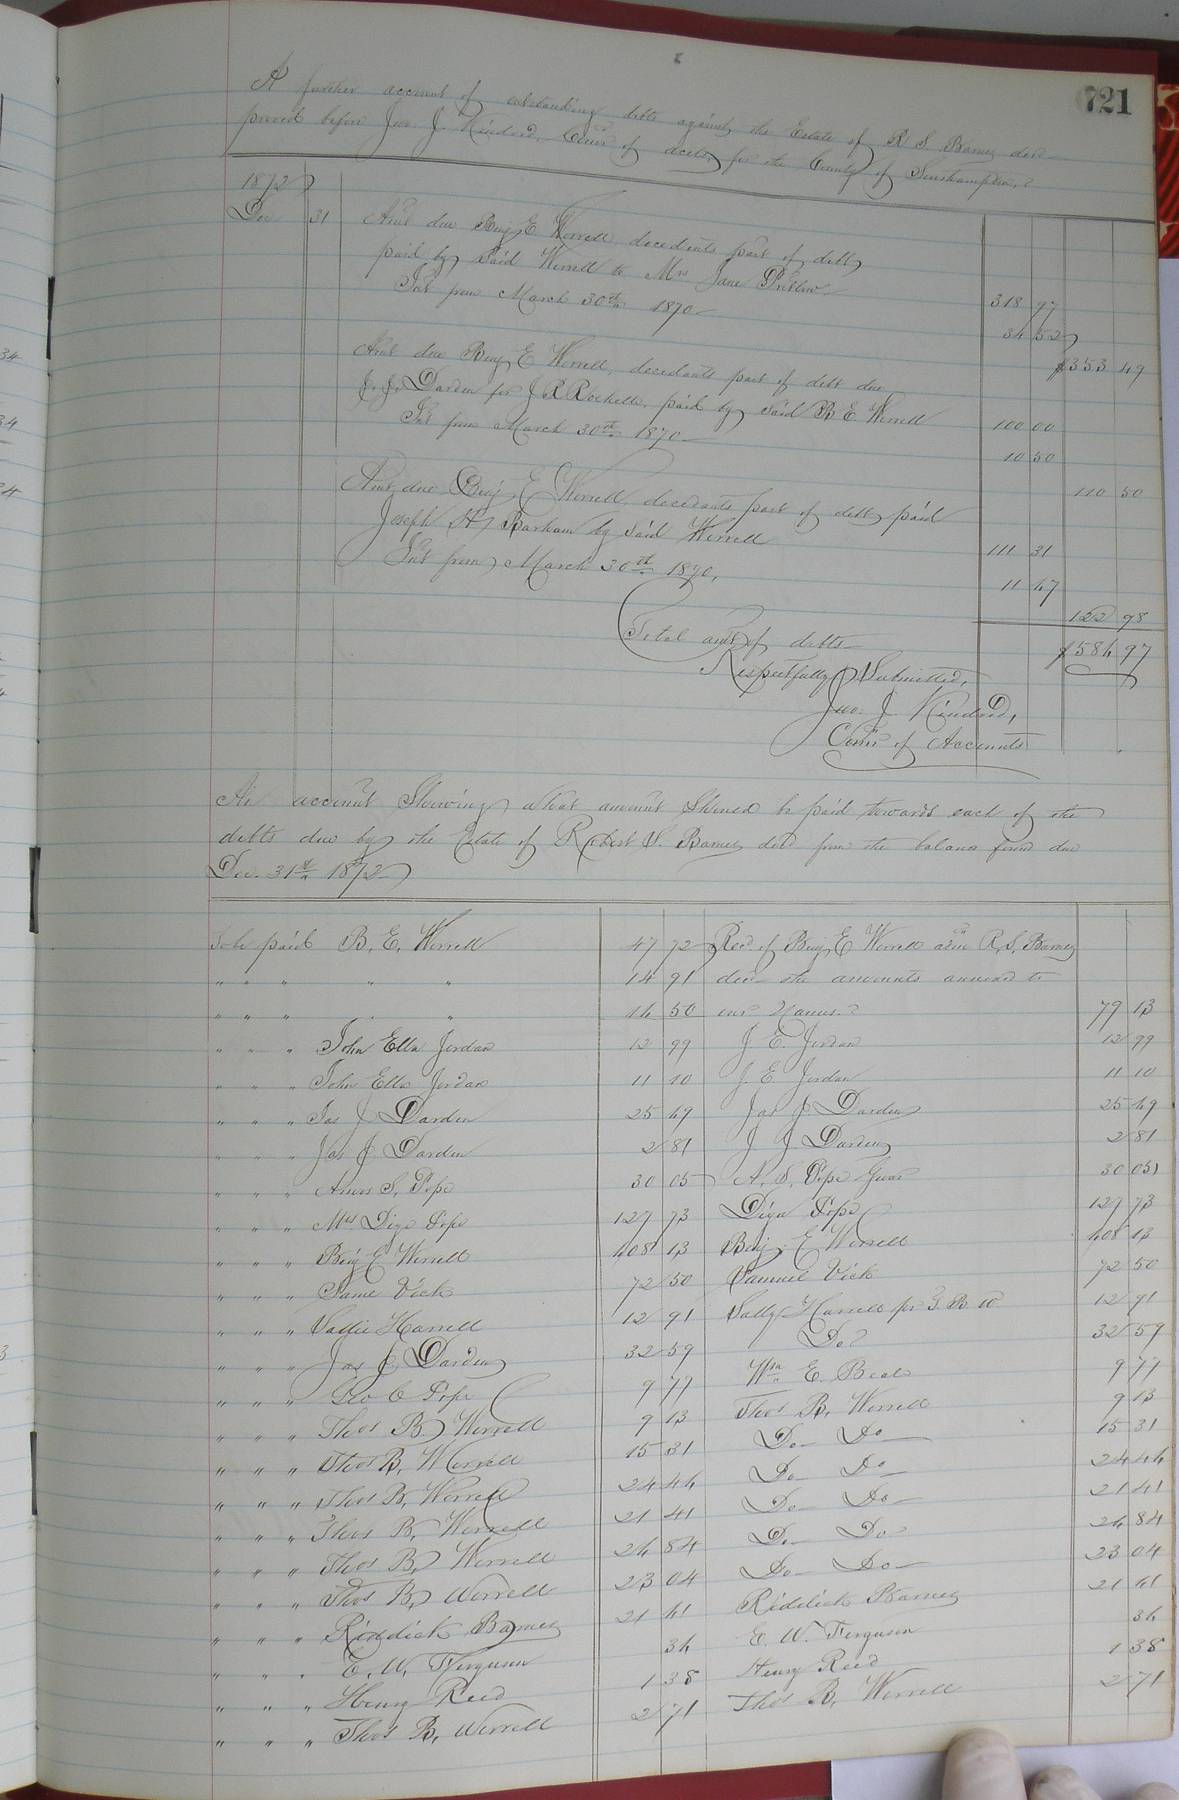 721
A further account of outstanding debts against the Estate of R S Barnes decd
proved before Jno. J. Kindred, Comr of accts, for the County of Southampton,
1872
Dec 31 Amt due Benj E Worrell decedents part of debt
paid by said Worrell to Mrs Jane
Int from March 30th 1870 318 97
34 52
$353 49
Amt due Benj E Worrell, decedants part of debt due
J. J. Darden for J R Rochelle, paid by said B E Worrell
Int from March 30th 1870 100 00
10 50
110 50
Amt due Benj E Worrell decedants part of debt paid
Joseph H Barham by said Worrell
Int from March 30th 1870, 111 31
11 47
122 98
Total amt of debts $584 97
Respectfully Submitted,
Jno. J. Kindred,
Comr of Accounts
An account Shewing what amount Should be paid towards each of the
debts due by the Estate of Robert S. Barnes decd from the balance found due
Dec. 31st 1872
To be paid B. E. Worrell 47 72 Recd of Benj E Worrell adm R. S. Barnes
" " " " " 14 91 decd the amounts annexed to
" " " " " 16 50 our Names. 79 13
" " " John Ella Jordan 12 99 J E Jordan 12 99
" " " John Ella Jordan 11 10 J E Jordan 11 10
" " " Jas J Darden 25 49 Jas J Darden 25 49
" " " Jas J Darden 2 81 J J Darden 2 81
" " " Amos S. Pope 30 05 A. S. Pope Guar 30 05
" " " Mrs Diza Pope 127 73 Diza Pope 127 73
" " " Benj E Worrell 408 13 Benj. E Worrell 408 13
" " " Saml Vick 72 50 Samuel Vick 72 50
" " " Sallie Harrell 12 91 Sally Harrell for G. B. W 12 91
" " " Jas J Darden 32 59 Do 32 59
" " " Geo C Pope 9 77 Wm E. Beale 9 77
" " " Thos B. Worrell 9 13 Thos B. Worrell 9 13
" " " Thos B. Worrell 15 31 Do Do 15 31
" " " Thos B. Worrell 24 44 Do Do 24 44
" " " Thos B. Worrell 21 41 Do Do 21 41
" " " Thos B. Worrell 24 84 Do Do 24 84
" " " Thos B. Worrell 23 04 Do Do 23 04
" " " Riddick Barnes 21 41 Riddick Barnes 21 41
" " " E. W. Ferguson 34 E. W. Ferguson 34
" " " Henry Reed 1 38 Henry Reed 1 38
" " " Thos B. Worrell 2 71 Thos B. Worrell 2 71